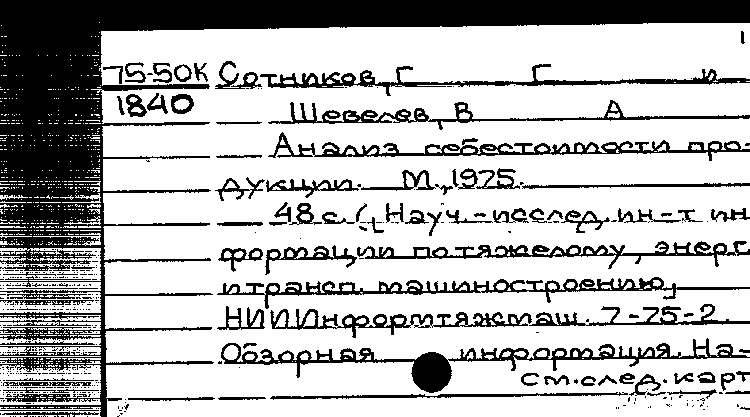 1
75-50К Сотников, Г Г и
1840 Шевелев, В А
Анализ себестоимости про-
дукции. М., 1975.
48 с. (Науч.-исслед. ин-т ин
формации по тяжелому, энерг.
и трансп. машиностроению,
НИИИнформтяжмаш. 7-75-2.
Обзорная информация. На-
см. след. карт